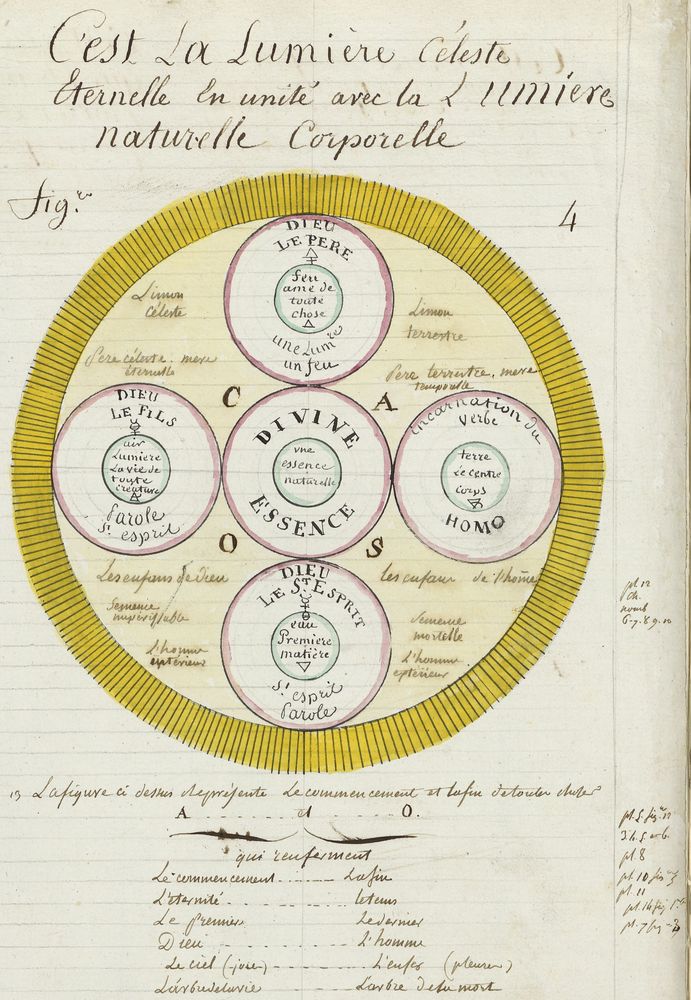 C'est La Lumière Céleste
Éternelle En unité avec la Lumiere
naturelle Corporelle
fig.re
4
DIEU
LE PERE
feu
ame de
toute
chose
une Lumre
un feu
Limon
céleste
Limon
terrestre
Pere céleste. mere
éternelle
Pere terrestre, mere
temporelle
C
A
DIEU
LE FILS
air
Lumiere
La vie de
toute
créature
Parole
St esprit
DIVINE
une
essence
naturelle
ESSENCE
incarnation du
Verbe
terre
Le centre
corps
HOMO
O
S
Les enfans de Dieu
les enfans de l'home
DIEU
LE ST ESPRIT
eau
Premiere
matière
St esprit
Parole
Semence
Semence
mortelle
L'homme
L'homme
pl 12
ch.
nomb
6-7.8 9.10
13 La figure ci dessus Représente Le commencement et la fin de toutes choses
A . . . . . . et . . . . . . O.
qui renferment
Le commencement . . . . . . La fin
L'éternité . . . . . . le tems
Le Premier Le dernier
Dieu . . . . . . L'homme
Le ciel (joie) . . . . . . L'enfer (pleurer)
L'arbre de la vie L'arbre de la mort
pl. 8
pl. 11